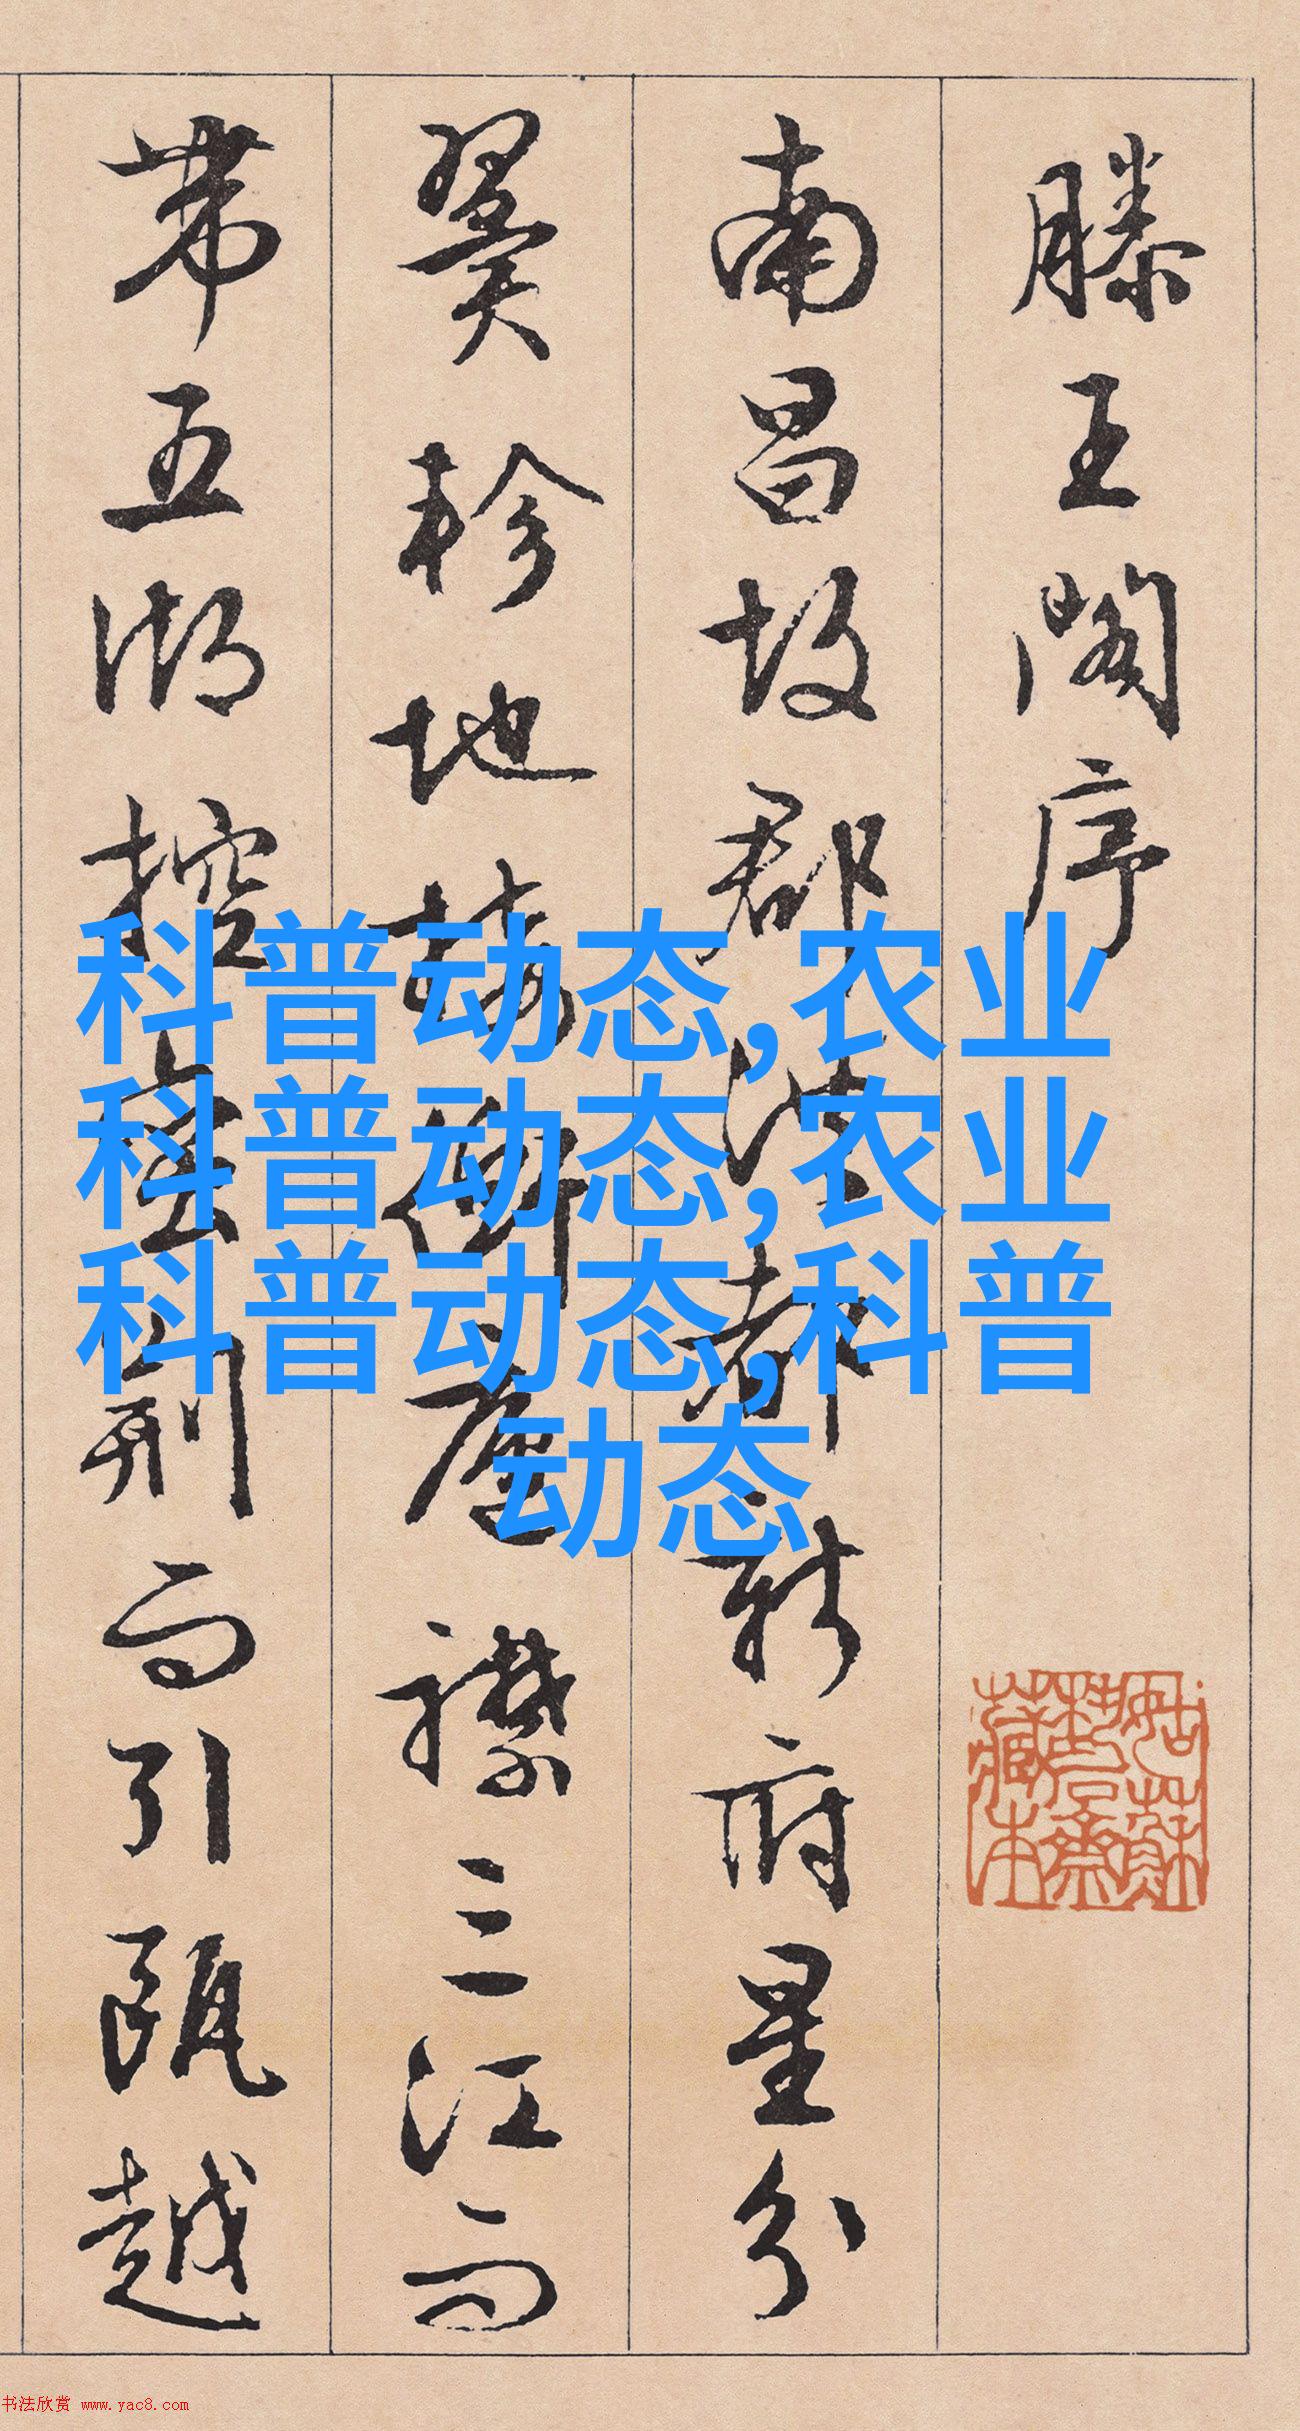 滕王閣序
南昌故郡洪都新府星分
翼軫地接衡廬襟三江而
帶五湖控蠻荊而引甌越
科普动态,农业
科普动态,农业
科普动态,科普
动态
书法欣赏 www.yac8.com